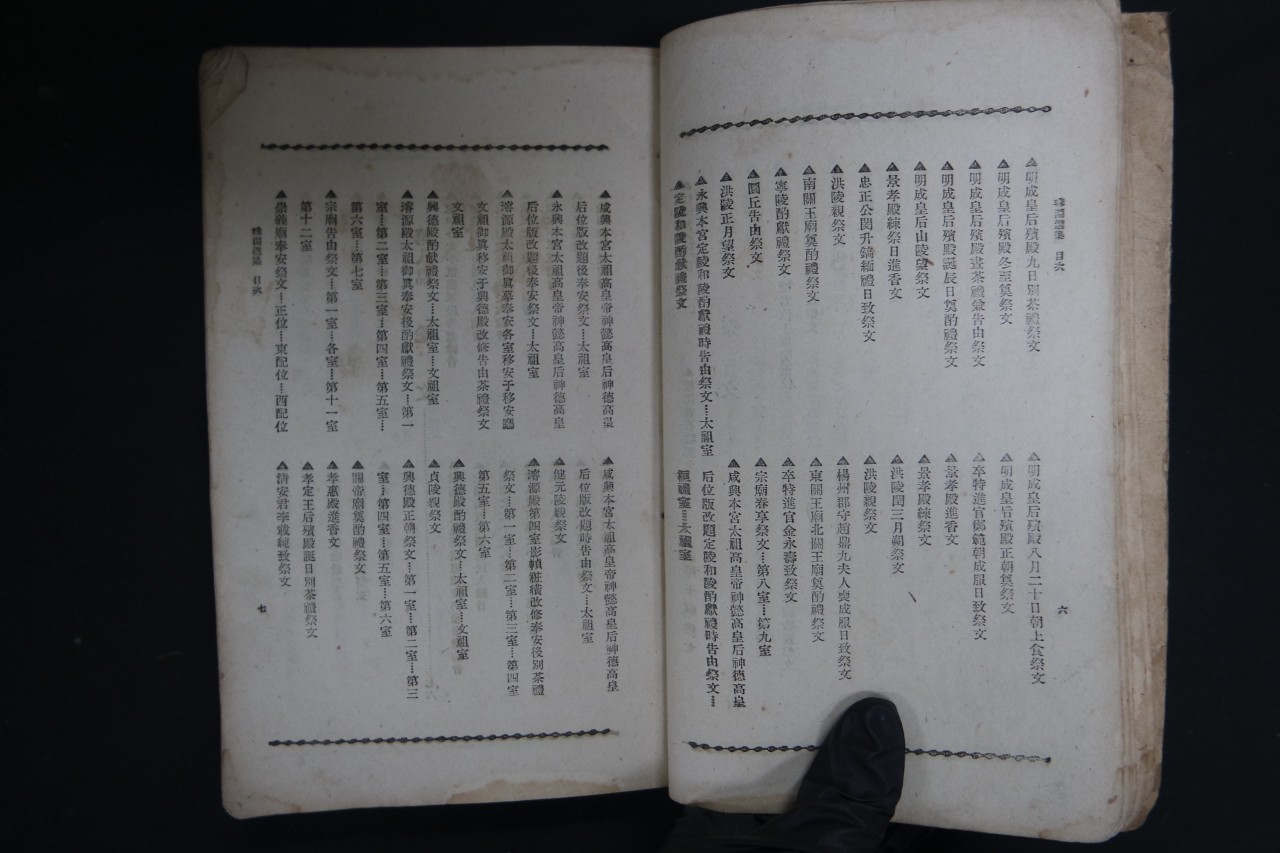 目次
六
▲明成皇后殯殿九日別茶禮祭文
▲明成皇后殯殿冬至奠祭文
▲明成皇后殯殿晝茶禮兼告由祭文
▲明成皇后殯殿誕辰日奠酌禮祭文
▲明成皇后山陵望祭文
▲景孝殿練祭日進香文
▲忠正公閔升鎬緬禮日致祭文
▲洪陵親祭文
▲南關王廟奠酌禮祭文
▲寧陵酌獻禮祭文
▲圜丘告由祭文
▲洪陵正月望祭文
▲永興本宮定陵和陵酌獻禮時告由祭文…太祖室
▲定陵和陵酌獻禮祭文
▲明成皇后殯殿八月二十日朝上食祭文
▲明成皇后殯殿正朝奠祭文
▲卒特進官鄭範朝成服日致祭文
▲景孝殿進香文
▲景孝殿練祭文
▲洪陵閏三月朔祭文
▲洪陵親祭文
▲楊州郡守趙鼎九夫人喪成服日致祭文
▲東關王廟北關王廟奠酌禮祭文
▲卒特進官金永壽致祭文
▲宗廟春享祭文…第八室…第九室
▲咸興本宮太祖高皇帝神懿高皇后神德高皇
后位版改題定陵和陵酌獻禮時告由祭文…
桓祖室…太祖室
▲咸興本宮太祖高皇帝神懿高皇后神德高皇
后位版改題後奉安祭文…太祖室
▲永興本宮太祖高皇帝神懿高皇后神德高皇
后位版改題後奉安祭文…太祖室
▲濬源殿太祖御眞摹奉安各室移安于移安廳
文祖御眞移安于興德殿改修告由茶禮祭文
文祖室
▲興德殿酌獻禮祭文…太祖室…文祖室
▲濬源殿太祖御眞奉安後酌獻禮祭文…第一
室…第二室…第三室…第四室…第五室…
第六室…第七室
▲宗廟告由祭文…第一室…各室…第十一室
第十二室
▲崇義廟奉安祭文…正位…東配位…西配位
▲咸興本宮太祖高皇帝神懿高皇后神德高皇
后位版改題時告由祭文…太祖室
▲健元陵親祭文
▲濬源殿第四室影幀粧䌙改修奉安後別茶禮
祭文…第一室…第二室…第三室…第四室
第五室…第六室
▲興德殿酌禮祭文…太祖室…文祖室
▲貞陵親祭文
▲興德殿正朝祭文…第一室…第二室…第三
室…第四室…第五室…第六室
▲關帝廟奠酌禮祭文
▲孝惠殿進香文
▲孝定王后殯殿誕日別茶禮祭文
▲清安君李載純致祭文
目次
七